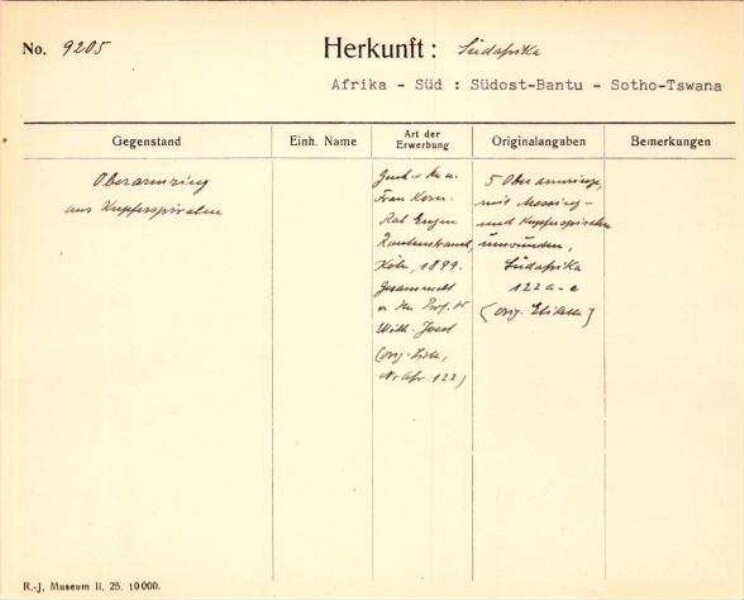 No. 9205
Herkunft: Südafrika
Afrika - Süd : Südost-Bantu - Sotho-Tswana
Gegenstand
Einh. Name
Art der
Erwerbung
Originalangaben
Bemerkungen
Oberarmring
aus Kupferspiralen
Gesch. v. Hn u.
Frau Kom.
Rat Eugen
Rautenstrauch,
Köln, 1899.
Gesammelt
v. Hn Prof. Dr
Wilh. Joest
(orig. Liste,
Nr Afr. 122)
5 Oberarmringe,
mit Messing-
und Kupferspiralen
umwunden,
Südafrika
122 a-e
(orig. Etikett)
R.-J. Museum II. 25. 10000.